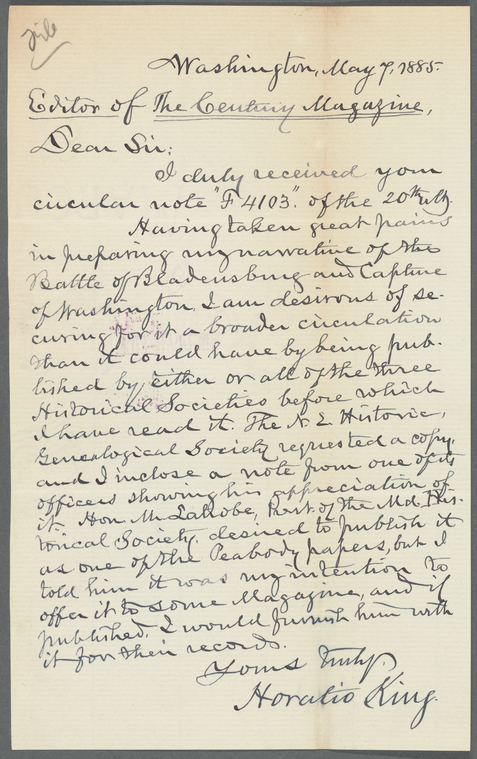 file
Washington, May 7, 1885.
Editor of The Century Magazine,
Dear Sir:
I duly received your
circular note "F 4103". of the 20th ult.
Having taken great pains
in preparing my narrative of the
Battle of Bladensburg and Capture
of Washington, I am desirous of se-
curing for it a broader circulation
than it could have by being pub-
lished by either or all of the three
Historical Societies before which
I have read it. The N. E. Historic,
Genealogical Society requested a copy,
and I inclose a note from one of its
officers showing his appreciation of
it. Hon. Mr. Latrobe, Prest. of the Md. His-
torical Society, desired to publish it
as one of the Peabody papers, but I
told him it was my intention to
offer it to some Magazine, and if
published, I would furnish him with
it for their records.
Yours truly,
Horatio King.